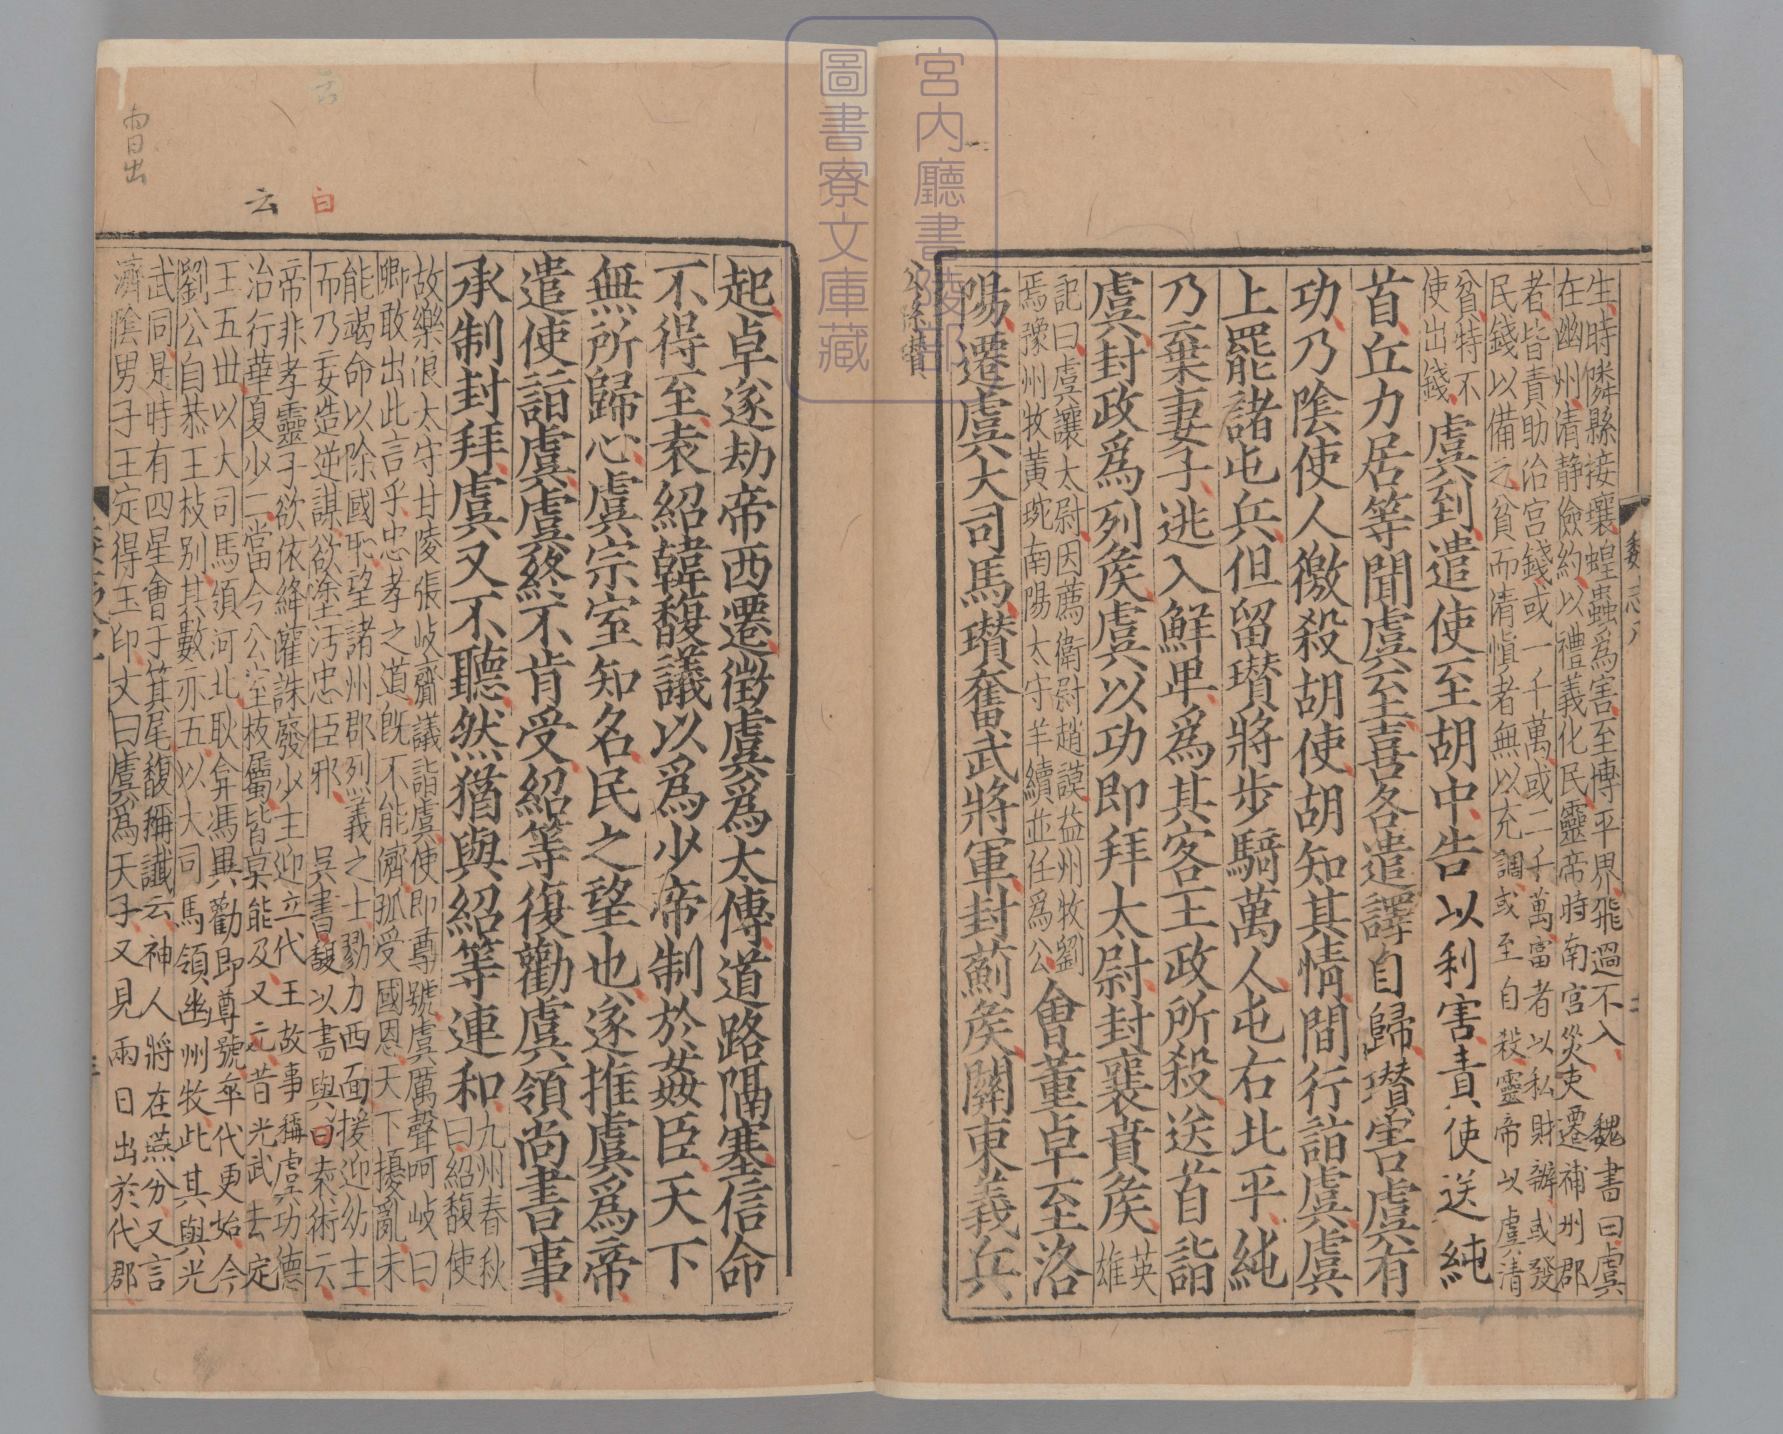 生時隣縣接壤蝗蟲爲害至博平界飛過不入　魏書曰虞
在幽州清靜儉約以禮義化民靈帝時南宮災吏遷補州郡
者皆責助治宮錢或一千萬或二千萬富者以私財辦或發
民錢以備之貧而清愼者無以充調或至自殺靈帝以虞清
貧特不
使出錢
虞到遣使至胡中告以利害責使送純
首丘力居等聞虞至喜各遣譯自歸瓚害虞有
功乃陰使人徼殺胡使胡知其情間行詣虞虞
上罷諸屯兵但留瓚將步騎萬人屯右北平純
乃棄妻子逃入鮮卑爲其客王政所殺送首詣
虞封政爲列矦虞以功即拜太尉封襄賁矦
英
雄
記曰虞讓太尉因薦衛尉趙謨益州牧劉
焉豫州牧黃琬南陽太守羊續並任爲公
會董卓至洛
陽遷虞大司馬瓚奮武將軍封薊矦關東義兵
宮内廳書陵部
圖書寮文庫藏
起卓遂劫帝西遷徵虞爲太傅道路隔塞信命
不得至袁紹韓馥議以爲少帝制於姦臣天下
無所歸心虞宗室知名民之望也遂推虞爲帝
遣使詣虞虞終不肯受紹等復勸虞領尚書事
承制封拜虞又不聽然猶與紹等連和
九州春秋
曰紹馥使
故樂浪太守甘陵張岐齎議詣虞使即尊號虞厲聲呵岐曰
卿敢出此言乎忠孝之道旣不能濟孤受國恩天下擾亂未
能竭命以除國恥望諸州郡烈義之士勠力西面援迎幼主
而乃妄造逆謀欲塗汚忠臣邪　吳書馥以書與曰袁術云
帝非孝靈子欲依絳灌誅發少主迎立代王故事稱虞功德
治行華夏少二當今公室枝屬皆莫能及又云昔光武去定
王五世以大司馬領河北耿弇馮異勸即尊號卒代更始今
劉公自恭王枝别其數亦五以大司馬領幽州牧此其與光
武同是時有四星會于箕尾馥稱讖云神人將在燕分又言
濟陰男子王定得玉印文曰虞爲天子又見兩日出於代郡
曰
云